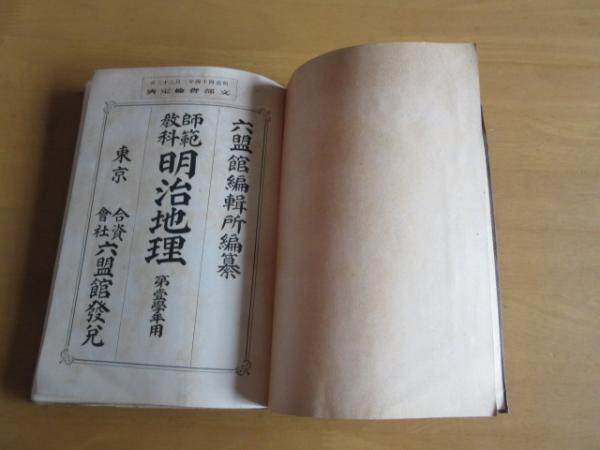 明治四十四年二月二十三日
文部省檢定濟
六盟館編輯所編纂
師範
教科
明治地理
第壹學年用
東京
合資
會社
六盟館發兌